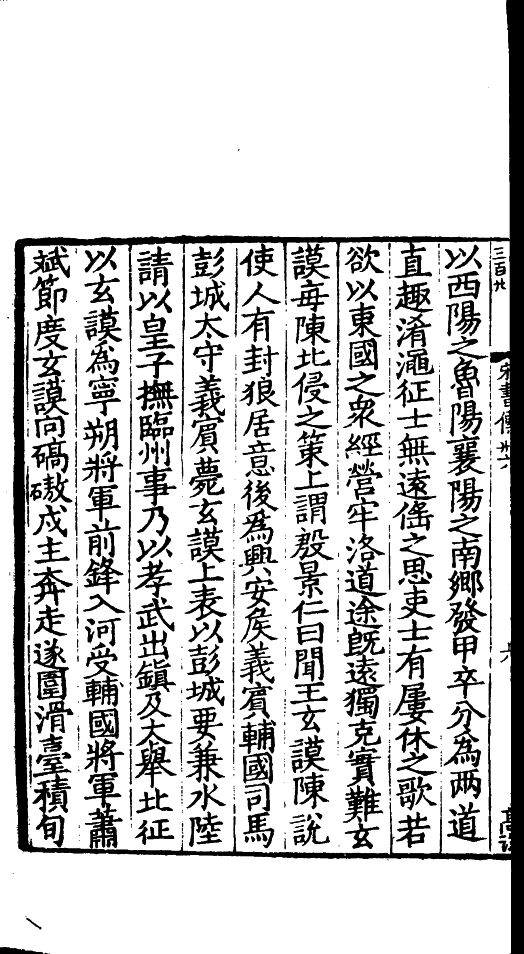 宋書傳卅六
六
以西陽之魯陽襄陽之南鄉發甲卒分為两道
直趣淆澠征士無遠傜之思吏士有屢休之歌若
欲以東國之衆經營牢洛道途旣遠獨克實難玄
謨每陳北侵之策上謂殷景仁曰聞王玄謨陳說
使人有封狼居意後為興安矦義賔輔國司馬
彭城太守義賔薨玄謨上表以彭城要兼水陸
請以皇子撫臨州事乃以孝武出鎮及大舉北征
以玄謨爲寧朔將軍前鋒入河受輔國將軍蕭
斌節度玄謨向碻磝戍主奔走遂圍滑臺積旬